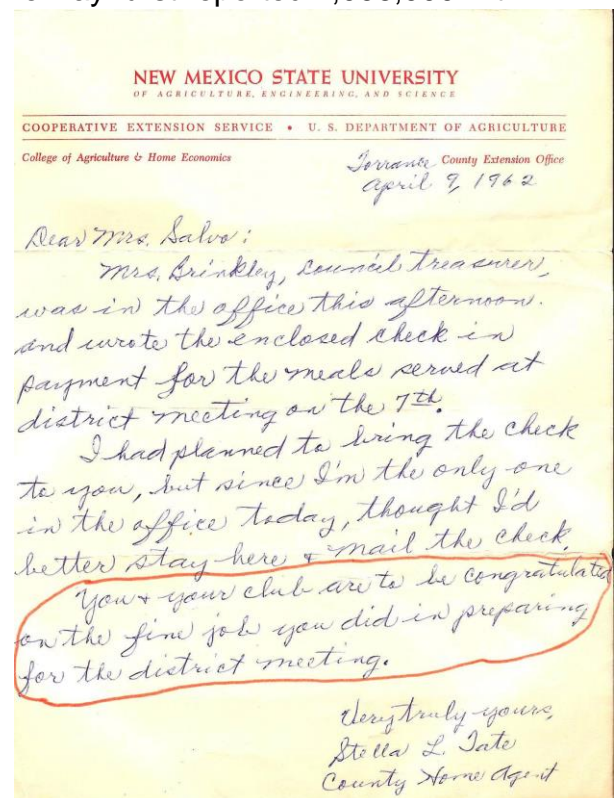 NEW MEXICO STATE UNIVERSITY
OF AGRICULTURE, ENGINEERING, AND SCIENCE
COOPERATIVE EXTENSION SERVICE • U. S. DEPARTMENT OF AGRICULTURE
College of Agriculture & Home Economics
Torrance County Extension Office
April 9, 1962
Dear Mrs. Salvo:
Mrs. Brinkley, Council treasurer,
was in the office this afternoon.
and wrote the enclosed check in
payment for the meals served at
district meeting on the 7th.
I had planned to bring the check
to you, but since I'm the only one
in the office today, thought I'd
better stay here & mail the check.
You & your club are to be congratulated
on the fine job you did in preparing
for the district meeting.
Very truly yours,
Stella L. Tate
County Home Agent